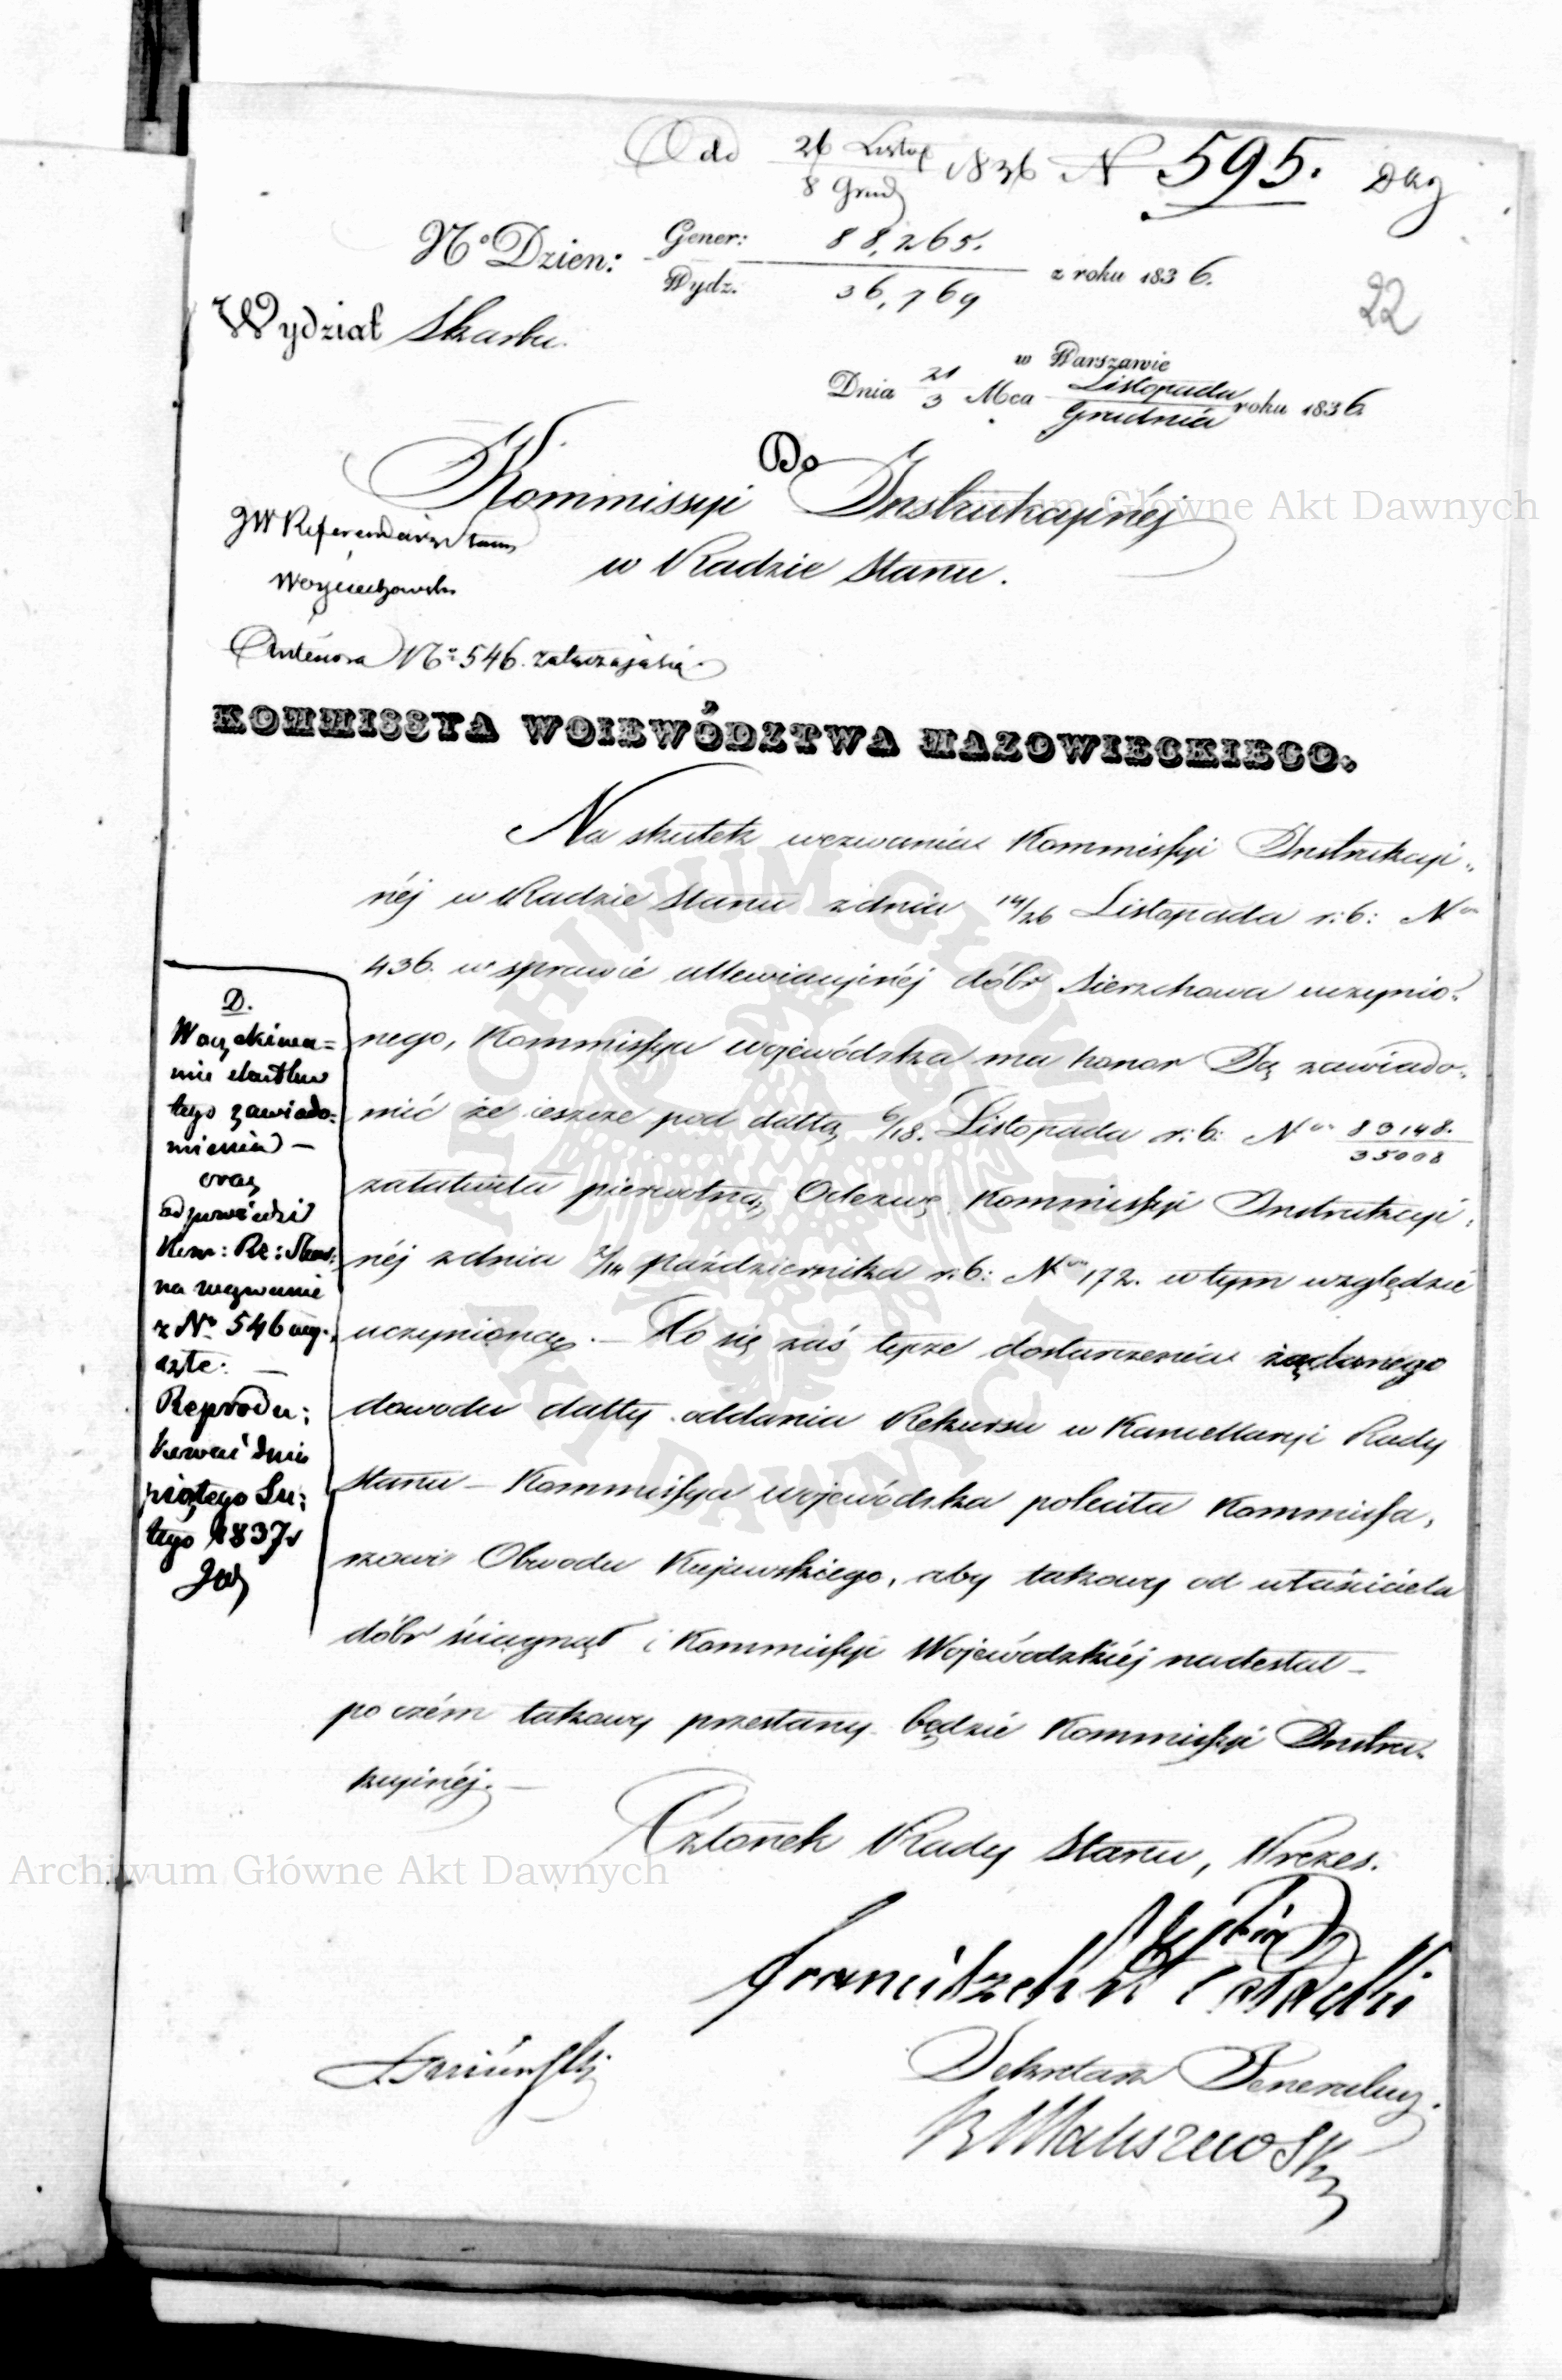 Odd 26 Listop / 8 Grud 1836 N 595. Dag
N° Dzien: Gener: 88,265. / Wydz. 36,769 z roku 1836.
22
Wydział Skarbu.
w Warszawie
Dnia 21/3 Mca Listopada/Grudnia roku 1836.
Do
Kommissyi Instrukcyinéj
w Radzie Stanu.
JW Referendarz Stanu
Woyciechowski
Anteriora N° 546. załączają się
KOMMISSYA WOIEWÓDZTWA MAZOWIECKIEGO.
Na skutek wezwania Kommissyi Instrukcyi-
néj w Radzie Stanu z dnia 14/26 Listopada r: b: Nro
436. w sprawie allewiacyinéj dóbr Sierzchowa uczynio-
nego, Kommissya wojewódzka ma honor Ją zawiado-
mić że ieszcze pod dattą 6/18. Listopada r: b: Nro 83148./35008
załatwiła pierwotną Odezwę Kommissyi Instrukcyi-
néj z dnia 2/14 Października r: b: Nro 172. w tym względzie
uczynioną. — Co się zaś tycze dostarczenia żądanego
dowodu datty oddania Rekursu w Kancellaryi Rady
Stanu — Kommissya wojewódzka poleciła Kommissa-
rzowi Obwodu Kujawskiego, aby takowy od właściciela
dóbr ściągnął i Kommissyi Wojewódzkiéj nadesłał —
po czém takowy przesłany będzie Kommissyi Instru-
kcyinéj. —
D.
W oczekiwa=
niu skutku
tego zawiado-
mienia —
oraz
odpowiedzi
Kom: Rz: Skar:
na wezwanie
z N° 546
Reprodu:
kować dnia
piątego Lu:
tego 1837 r
Członek Rady Stanu, Prezes.
Franciszek
Sekretarz Generalny.
Archiwum Główne Akt Dawnych
Archiwum Główne Akt Dawnych
ARCHIWUM GŁÓWNE
AKT DAWNYCH